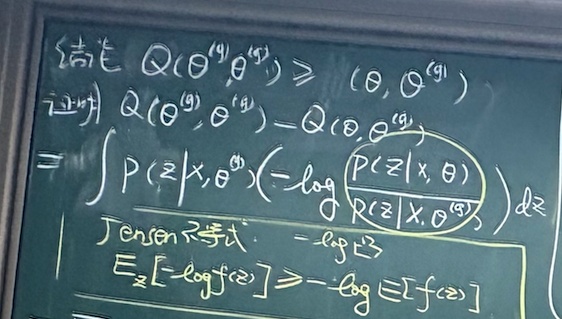 Q(θ^(g), θ^(g)) ≥ (θ, θ^(g))
证明 Q(θ^(g), θ^(g)) - Q(θ, θ^(g))
= ∫ P(z|x, θ^(g)) (-log P(z|x, θ) / P(z|x, θ^(g))) dz
Jensen不等式 -log凸
E_z[-log f(z)] ≥ -log E[f(z)]